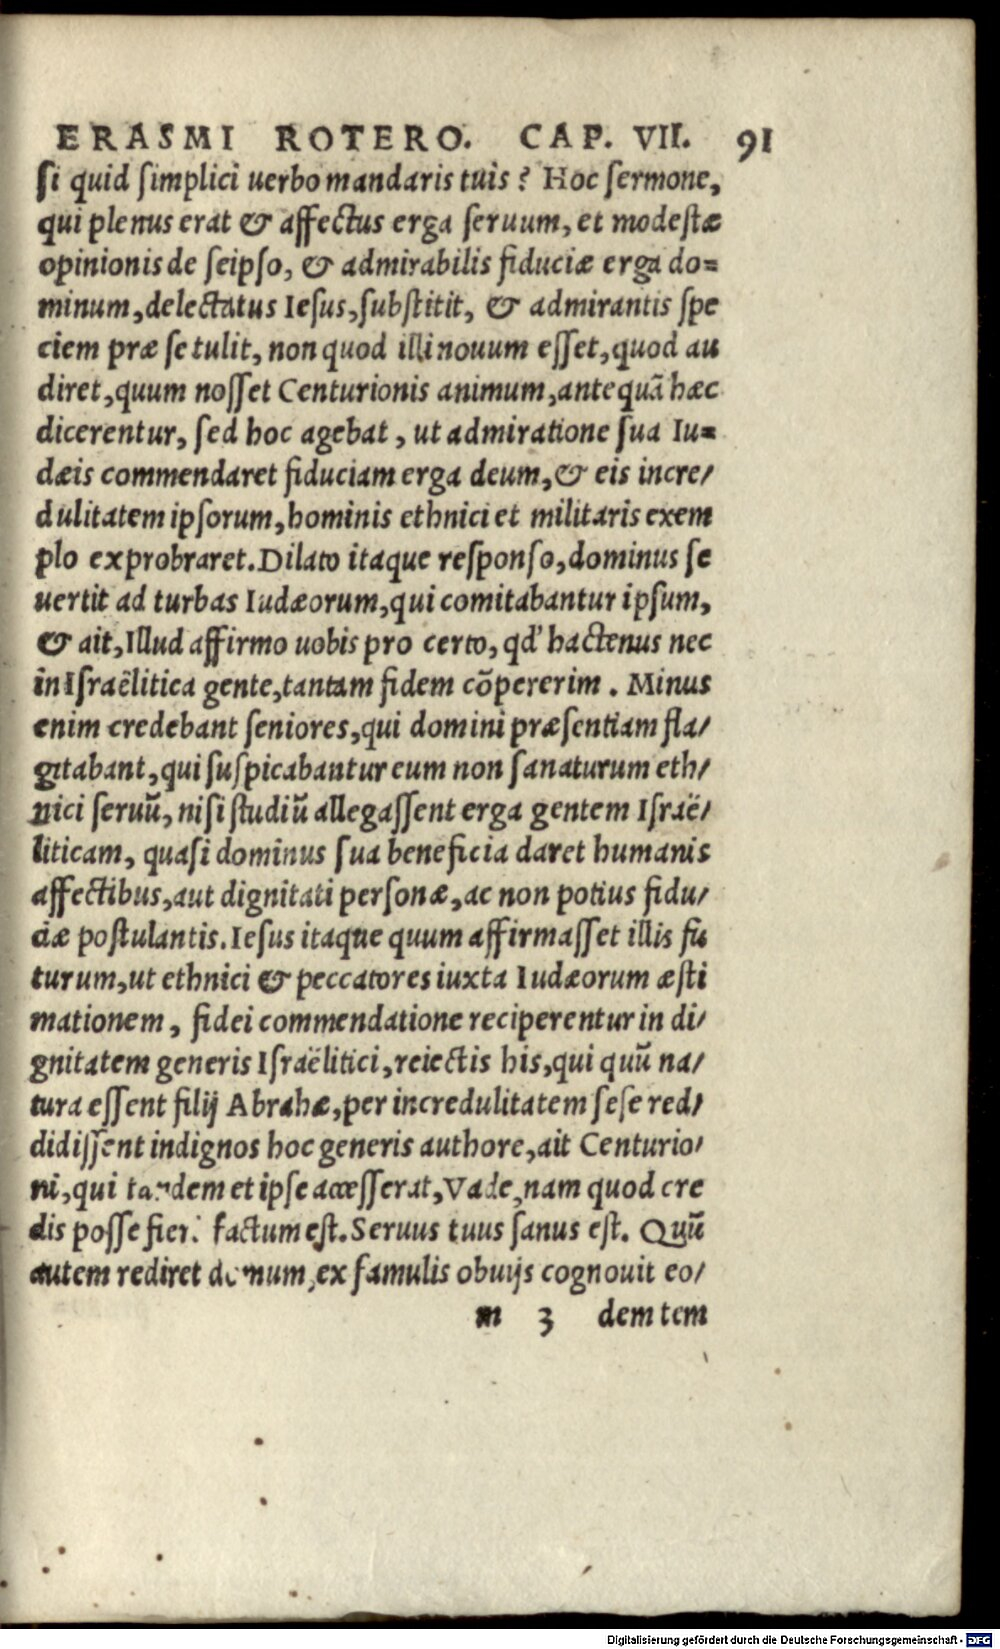 ERASMI ROTERO. CAP. VII. 91
si quid simplici uerbo mandaris tuis? Hoc sermone,
qui plenus erat & affectus erga seruum, et modestæ
opinionis de seipso, & admirabilis fiduciæ erga do=
minum, delectatus Iesus, substitit, & admirantis spe
ciem præ se tulit, non quod illi nouum esset, quod au
diret, quum nosset Centurionis animum, antequā hæc
dicerentur, sed hoc agebat, ut admiratione sua Iu=
dæis commendaret fiduciam erga deum, & eis incre/
dulitatem ipsorum, hominis ethnici et militaris exem
plo exprobraret. Dilato itaque responso, dominus se
uertit ad turbas Iudæorum, qui comitabantur ipsum,
& ait, Illud affirmo uobis pro certo, qd' hactenus nec
in Israëlitica gente, tantam fidem cōpererim. Minus
enim credebant seniores, qui domini præsentiam fla/
gitabant, qui suspicabantur eum non sanaturum eth/
nici seruū, nisi studiū allegassent erga gentem Israë/
liticam, quasi dominus sua beneficia daret humanis
affectibus, aut dignitati personæ, ac non potius fidu/
ciæ postulantis. Iesus itaque quum affirmasset illis fu
turum, ut ethnici & peccatores iuxta Iudæorum æsti
mationem, fidei commendatione reciperentur in di/
gnitatem generis Israëlitici, reiectis his, qui quū na/
tura essent filij Abrahæ, per incredulitatem sese red/
didissent indignos hoc generis authore, ait Centurio/
ni, qui tandem et ipse accesserat, Vade, nam quod cre
dis posse fieri factum est. Seruus tuus sanus est. Quū
autem rediret domum, ex famulis obuijs cognouit eo/
m 3 dem tem
Digitalisierung gefördert durch die Deutsche Forschungsgemeinschaft - DFG